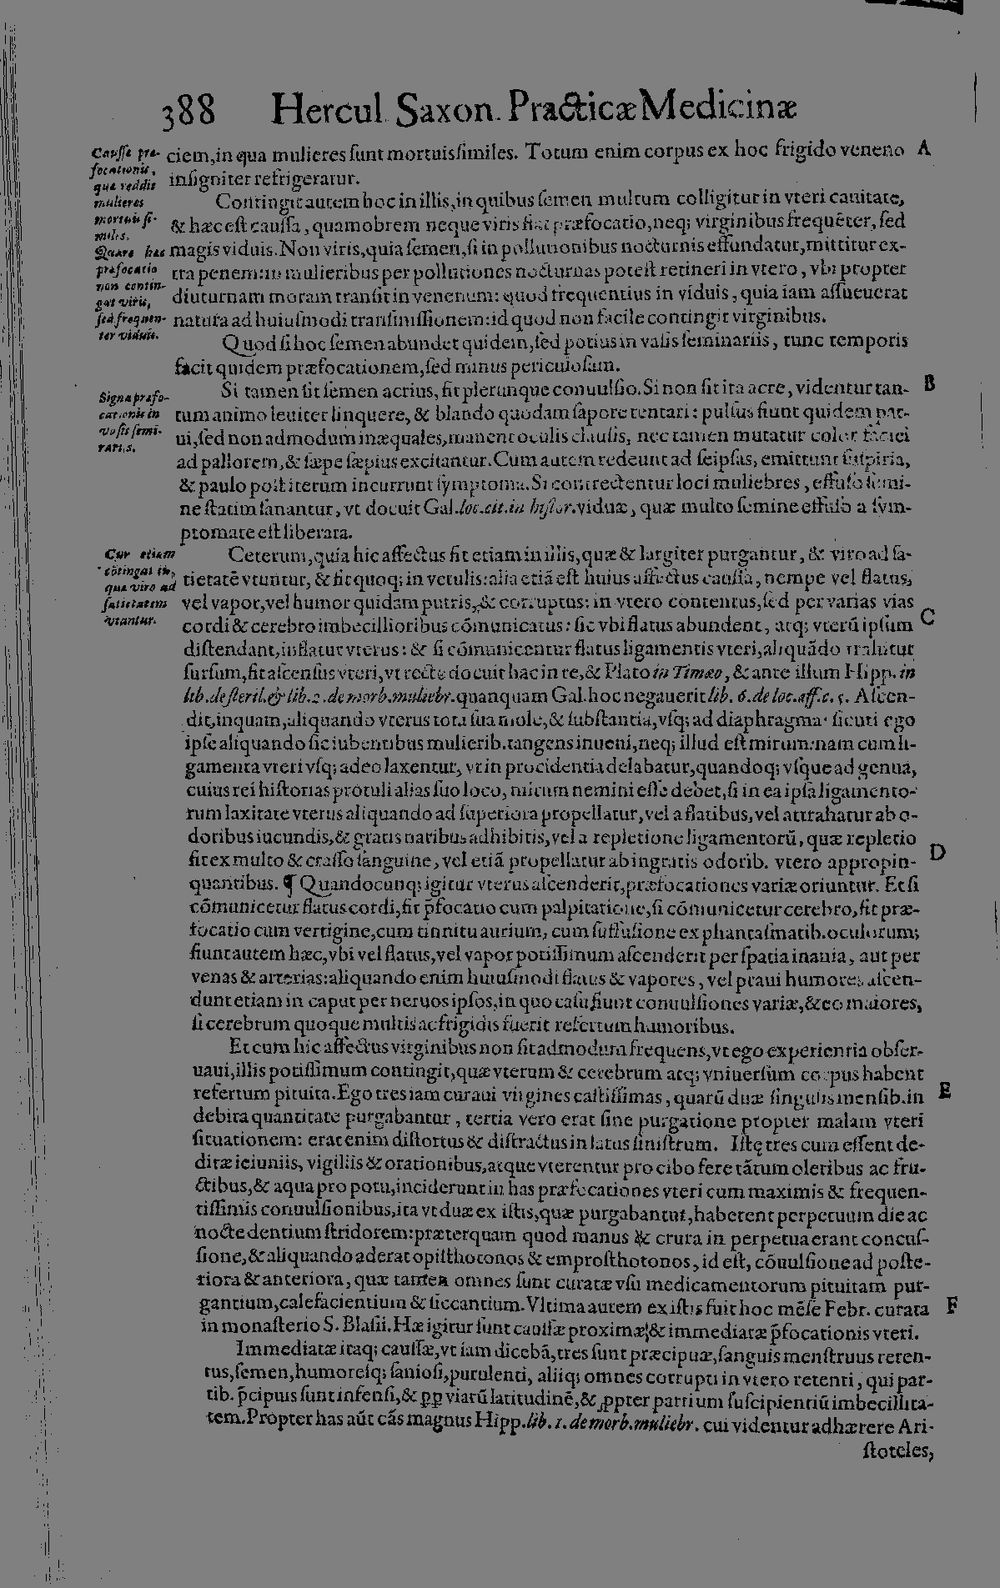 388 Hercul. Saxon. Practicæ Medicinæ
Causſæ præ-
focationis,
quæ reddit
mulieres
mortuis ſi-
miles.
Quare hæc
præfocatio
non contin-
gat viris,
ſed frequen-
ter viduis.
ciem, in qua mulieres ſunt mortuis ſimiles. Totum enim corpus ex hoc frigido veneno A
inſigniter refrigeratur.
Contingit autem hoc in illis, in quibus ſemen multum colligitur in vteri cauitate,
& hæc eſt cauſſa, quamobrem neque viris fiat præfocatio, neq; virginibus frequẽter, ſed
magis viduis. Non viris, quia ſemen, ſi in pollutionibus nocturnis effundatur, mittitur ex-
tra penem: in mulieribus per pollutiones nocturnas poteſt retineri in vtero, vbi propter
diuturnam moram tranſit in venenum: quod frequentius in viduis, quia iam aſſueuerat
natura ad huiuſmodi tranſmiſſionem: id quod non facile contingit virginibus.
Quod ſi hoc ſemen abundet quidem, ſed potius in vaſis ſeminariis, tunc temporis
facit quidem præfocationem, ſed minus periculoſam.
Signa præfo-
cationis in
vaſis ſemi-
rariis.
Si tamen ſit ſemen acrius, fit plerunque conuulſio. Si non ſit ita acre, videntur tan- B
tum animo leuiter linquere, & blando quodam ſapore tentari: pulſus fiunt quidem par-
ui, ſed non admodum inæquales, manent oculis clauſis, nec tamen mutatur color faciei
ad pallorem, & ſæpe ſæpius excitantur. Cum autem redeunt ad ſeipſas, emittunt ſuſpiria,
& paulo poſt iterum incurrunt ſymptoma. Si contrectentur loci muliebres, effuſo ſemi-
ne ſtatim ſanantur, vt docuit Gal. loc. cit. in hiſtor. viduæ, quæ multo ſemine effuſo a ſym-
ptomate eſt liberata.
Cur etiam
cõtingat iis,
quæ viro ad
ſatietatem
vtantur.
Ceterum, quia hic affectus fit etiam in illis, quæ & largiter purgantur, & viro ad ſa-
tietatẽ vtuntur, & fit quoq; in vetulis: alia etiã eſt huius affectus cauſſa, nempe vel flatus,
vel vapor, vel humor quidam putris, & corruptus: in vtero contentus, ſed per varias vias
cordi & cerebro imbecillioribus cõmunicatus: ſic vbi flatus abundent, atq; vterũ ipſum C
diſtendant, inflatur vterus: & ſi cõmunicentur flatus ligamentis vteri, aliquãdo trahitur
ſurſum, fit aſcenſus vteri, vt recte docuit hac in re, & Plato in Timæo, & ante illum Hipp. in
lib. de ſteril. & lib. 2. de morb. muliebr. quanquam Gal. hoc negauerit lib. 6. de loc. aff. c. 5. Aſcen-
dit, inquam, aliquando vterus tota ſua mole, & ſubſtantia, vſq; ad diaphragma: ſicuti ego
ipſe aliquando ſic iubentibus mulierib. tangens inueni, neq; illud eſt mirum: nam cum li-
gamenta vteri vſq; adeo laxentur, vt in procidentia delabatur, quandoq; vſque ad genua,
cuius rei hiſtorias protuli alias ſuo loco, mirum nemini eſſe debet, ſi in ea ipſa ligamento-
rum laxitate vterus aliquando ad ſuperiora propellatur, vel a flatibus, vel attrahatur ab o-
doribus iucundis, & gratis naribus adhibitis, vel a repletione ligamentorũ, quæ repletio
fit ex multo & craſſo ſanguine, vel etiã propellatur ab ingratis odorib. vtero appropin- D
quantibus. ¶ Quandocunq; igitur vterus aſcenderit, præfocationes variæ oriuntur. Et ſi
cõmunicetur flatus cordi, fit p̃focatio cum palpitatione, ſi cõmunicetur cerebro, fit præ-
focatio cum vertigine, cum tinnitu aurium, cum ſuffuſione ex phantaſmatib. oculorum;
fiunt autem hæc, vbi vel flatus, vel vapor potiſſimum aſcenderit per ſpatia inania, aut per
venas & arterias: aliquando enim huiuſmodi flatus & vapores, vel praui humores aſcen-
dunt etiam in caput per neruos ipſos, in quo caſu fiunt conuulſiones variæ, & eo maiores,
ſi cerebrum quoque multis ac frigidis fuerit refertum humoribus.
Et cum hic affectus virginibus non ſit admodum frequens, vt ego experientia obſer-
uaui, illis potiſſimum contingit, quæ vterum & cerebrum atq; vniuerſum corpus habent
refertum pituita. Ego tres iam curaui virgines caſtiſſimas, quarũ duæ ſingulis menſib. in E
debita quantitate purgabantur, tertia vero erat ſine purgatione propter malam vteri
ſituationem: erat enim diſtortus & diſtractus in latus ſiniſtrum. Iſtę tres cum eſſent de-
ditæ ieiuniis, vigiliis & orationibus, atque vterentur pro cibo fere tãtum oleribus ac fru-
ctibus, & aqua pro potu, inciderunt in has præfocationes vteri cum maximis & frequen-
tiſſimis conuulſionibus, ita vt duæ ex iſtis, quæ purgabantur, haberent perpetuum die ac
nocte dentium ſtridorem: præterquam quod manus & crura in perpetua erant concuſ-
ſione, & aliquando aderat opiſthotonos & emproſthotonos, id eſt, cõuulſione ad poſte-
riora & anteriora, quæ tamen omnes ſunt curatæ vſu medicamentorum pituitam pur-
gantium, calefacientium & ſiccantium. Vltima autem ex iſtis fuit hoc mẽſe Febr. curata F
in monaſterio S. Blaſii. Hæ igitur ſunt cauſſæ proximæ, & immediatæ p̃focationis vteri.
Immediatæ itaq; cauſſæ, vt iam dicebã, tres ſunt præcipuæ, ſanguis menſtruus reten-
tus, ſemen, humoreſq; ſanioſi, purulenti, aliiq; omnes corrupti in vtero retenti, qui par-
tib. p̃cipuis ſunt infenſi, & ꝓp viarũ latitudinẽ, & ꝓpter partium ſuſcipientiũ imbecillita-
tem. Propter has aũt cãs magnus Hipp. lib. 1. de morb. muliebr. cui videntur adhærere Ari-
ſtoteles,